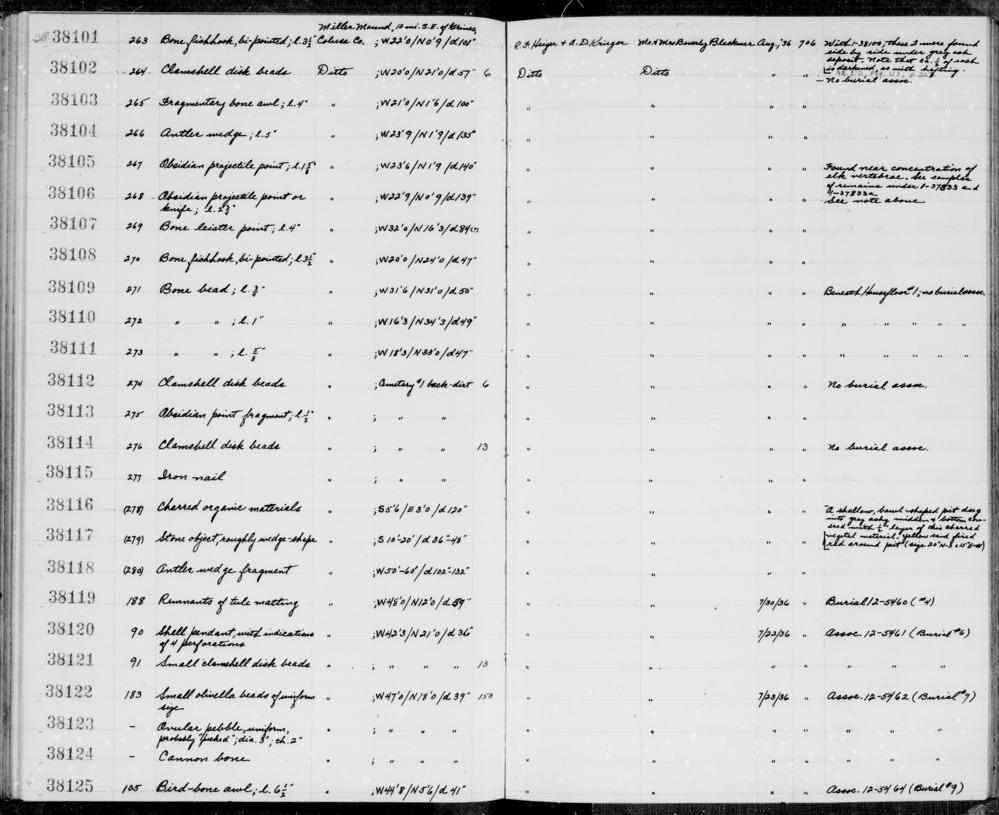 Miller Mound, 10 mi. S.E. of Grimes,
38101 263 Bone fishhook, bi-pointed; l. 3½" Colusa Co. ; W22'0/N0'9/d101" R.F. Heizer + A.D. Krieger Mr. + Mrs Beverly Blackmer Aug., '36 706 With 1-38100, these 2 were found
side by side under grey ash
deposit. Note that ca. ½ of each
is darkened, as with
— No burial assoc.
38102 264 Clamshell disk beads Ditto ; W20'0/N21'0/d57" 6 Ditto Ditto " "
38103 265 Fragmentary bone awl; l. 4" " ; W21'0/N1'6/d100" " " " "
38104 266 Antler wedge; l. 5" " ; W23'9/N1'9/d135" " " " "
38105 267 Obsidian projectile point; l. 1⅝" " ; W23'6/N1'9/d140" " " " " Found near concentration of
elk vertebrae. See samples
of remains under 1-37833 and
1-37833a
38106 268 Obsidian projectile point or " ; W22'9/N0'9/d139" " " " " See note above
knife; l. 2¾"
38107 269 Bone leister point; l. 4" " ; W32'0/N16'3/d84(?) " " " "
38108 270 Bone fishhook, bi-pointed; l. 3½" " ; W20'0/N24'0/d47" " " " "
38109 271 Bone bead; l. ¾" " ; W31'6/N31'0/d50" " " " " Beneath Housefloor #1; no burial assoc.
38110 272 " " ; l. 1" " ; W16'3/N34'3/d49" " " " " " " " " "
38111 273 " " ; l. ⅝" " ; W18'3/N33'0/d47" " " " " " " " " "
38112 274 Clamshell disk beads " ; Cemetery #1 back-dirt 6 " " " " No burial assoc.
38113 275 Obsidian point fragment; l. ½" " ; " " " " " "
38114 276 Clamshell disk beads " ; " " 13 " " " " No burial assoc.
38115 277 Iron nail " ; " " " " " "
38116 (278) Charred organic materials " ; S5'6/E3'0/d120" " " " " "A shallow, bowl-shaped pit dug
into grey ashy midden + bottom cov-
ered with ½" layer of this charred
vegetal material. Yellow sand fired
red around pit (size 20" N-S x 15" E-W)
38117 (279) Stone object, roughly wedge-shape " ; S10'-20'/d36"-48" " " " "
38118 (280) Antler wedge fragment " ; W50'-60'/d102"-132" " " " "
38119 188 Remnants of tule matting " ; W48'0/N12'0/d59" " " 7/30/36 " Burial 12-5460 (#4)
38120 90 Shell pendant, with indications " ; W42'3/N21'0/d36" " " 7/22/36 " Assoc. 12-5461 (Burial #6)
of 4 perforations
38121 91 Small clamshell disk beads " ; " " " 13 " " " " " " " "
38122 183 Small olivella beads of uniform " ; W47'0/N18'0/d39" 150 " " 7/23/36 " Assoc. 12-5462 (Burial #7)
size
38123 – Ovular pebble, uniform, " ; " " " " " " " " " " "
probably "pecked"; dia. 3"; th. 2"
38124 – Cannon bone " " " " "
38125 105 Bird-bone awl; l. 6½" " ; W44'8/N5'6/d41" " " " " Assoc. 12-5464 (Burial #9)